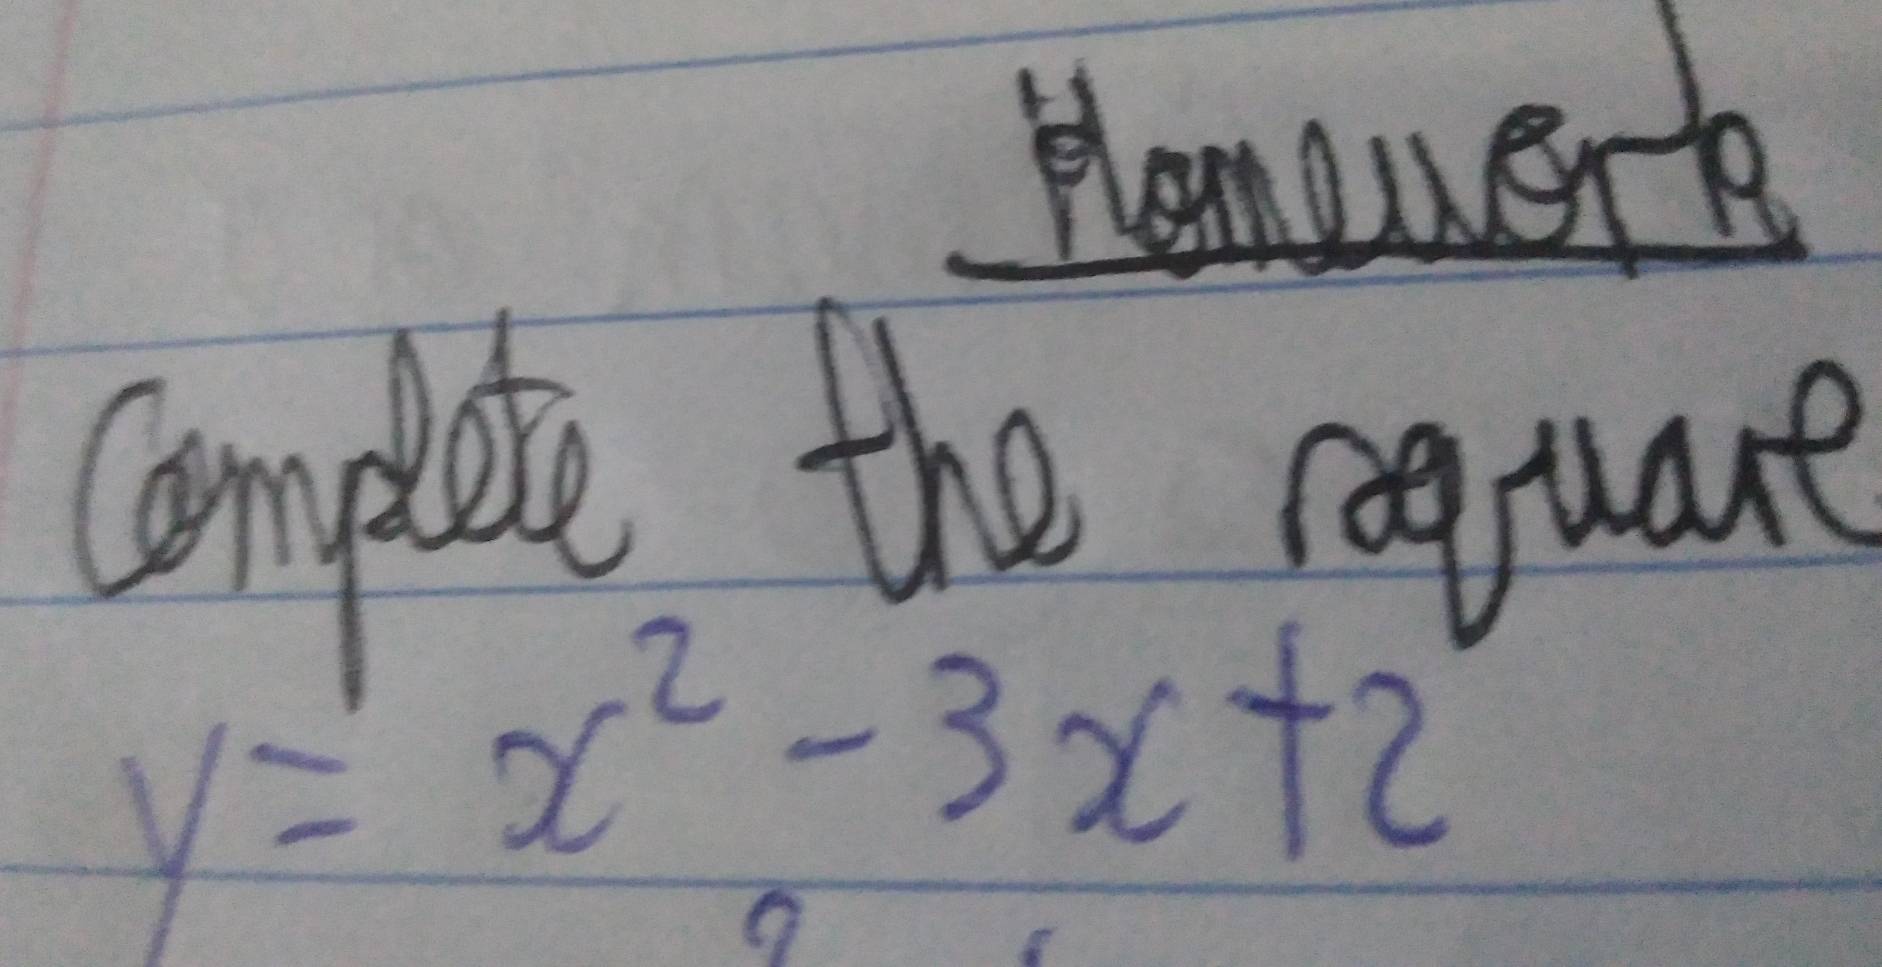 Homework
Complete the square
y = x² - 3x + 2